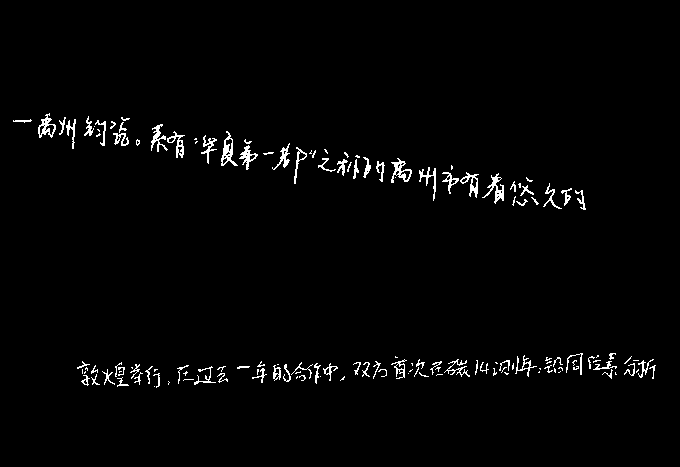 一禹州钧瓷。素有“华夏第一都”之称的禹州市有着悠久的
敦煌举行,在过去一年的合作中,双方首次在碳14测年、铅同位素分析